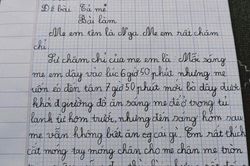 Đề bài Tả mẹ
Bài làm
Mẹ em tên là Nga. Mẹ em rất chăm
chỉ
Sự chăm chỉ của mẹ em là Mỗi sáng
mẹ em dậy vào lúc 6 giờ 50 phút nhưng mẹ
ườn éo đến tận 7 giờ 50 phút mới bò dậy được
khỏi giường đồ ăn sáng mẹ để ở trong tủ
lạnh từ hôm trước nhưng đến sáng hôm sau
mẹ vẫn không biết ăn cái gì. Em rất thích
cắt móng tay móng chân cho mẹ chân mẹ tròn